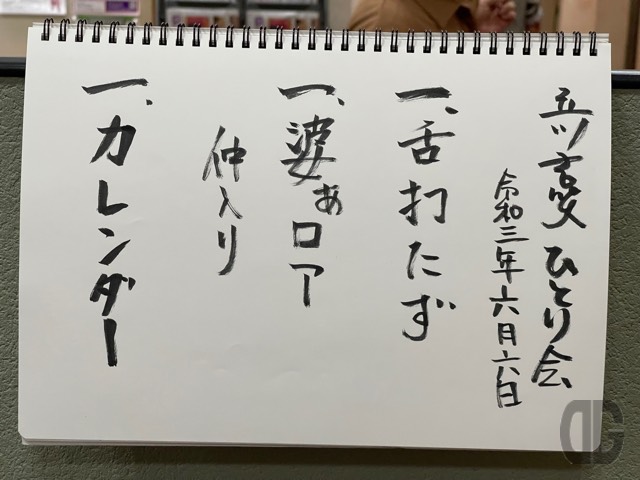 立川吉笑 ひとり会
令和三年六月六日
一、舌打たず
一、婆ぁロアー
仲入り
一、カレンダー
DG